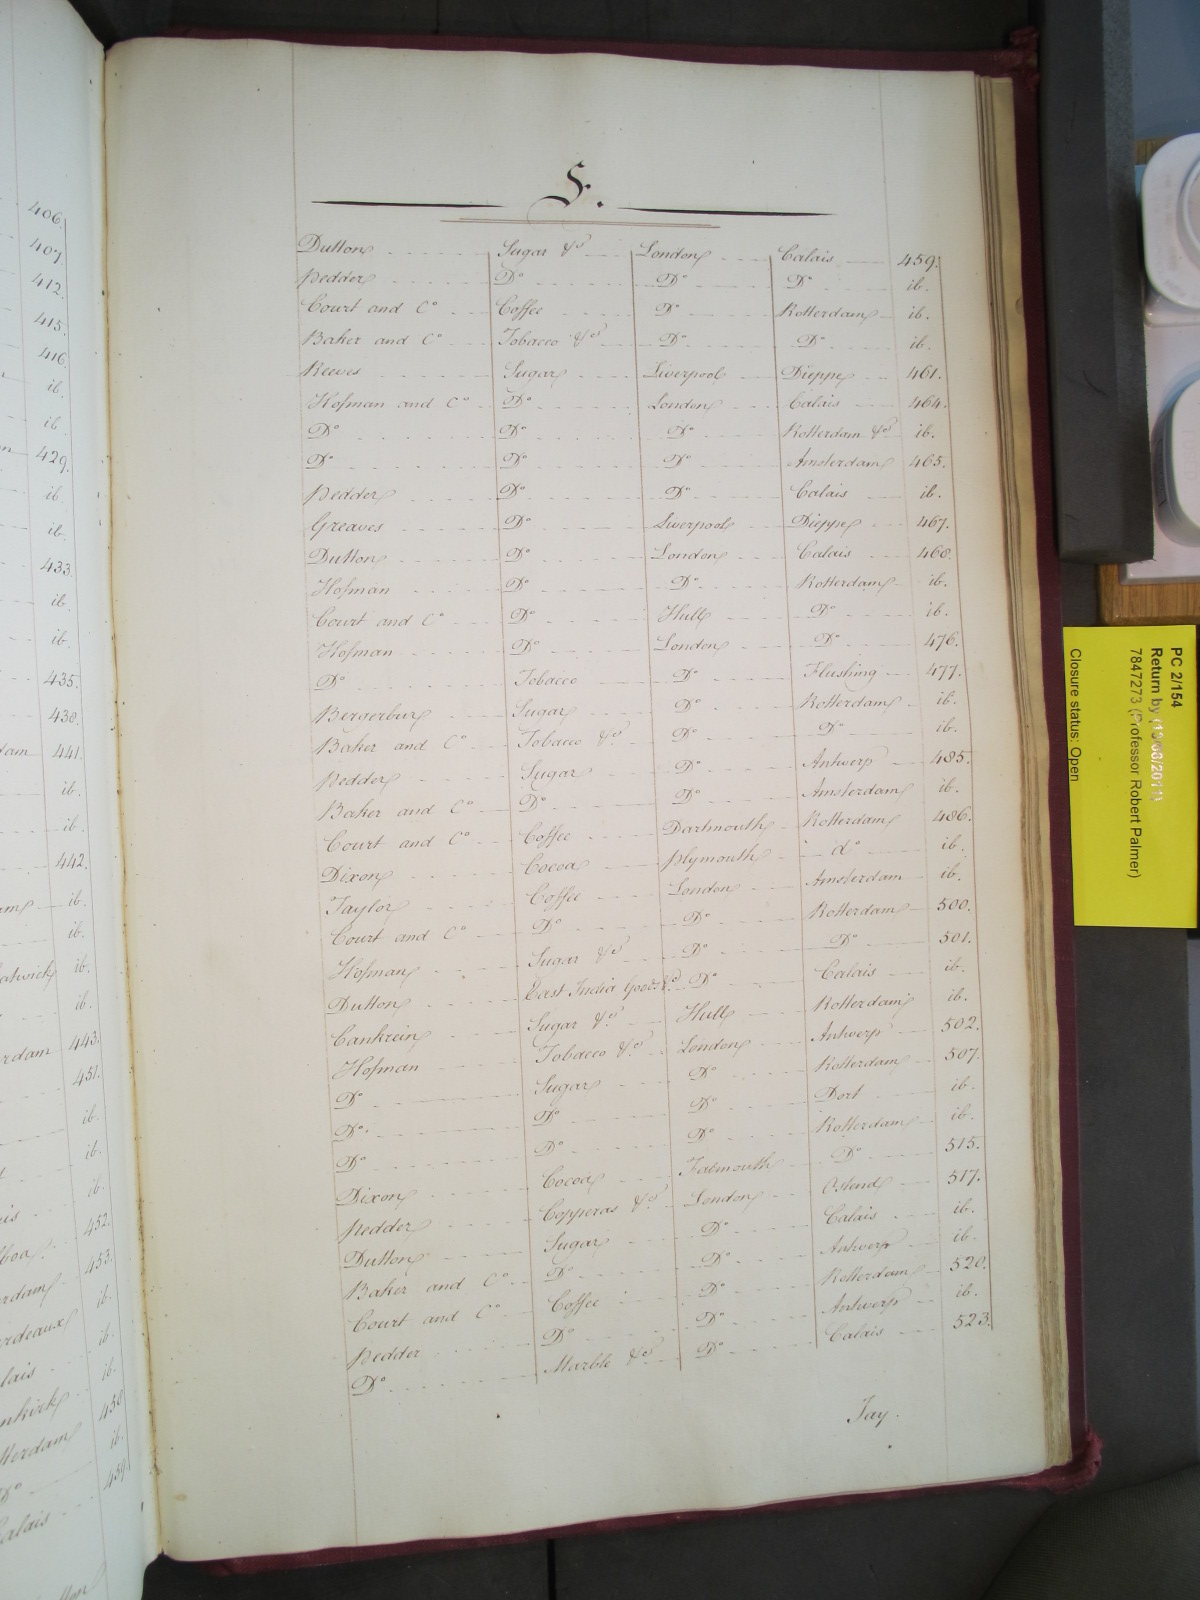 S.
Dutton Sugar &c London Calais 459.
Pedder Do Do Do ib.
Court and Co Coffee Do Rotterdam ib.
Baker and Co Tobacco &c Do Do ib.
Reeves Sugar Liverpool Dieppe 461.
Hofman and Co Do London Calais 464.
Do Do Do Rotterdam &c ib.
Do Do Do Amsterdam 465.
Pedder Do Do Calais ib.
Greaves Do Liverpool Dieppe 467.
Dutton Do London Calais 468.
Hofman Do Do Rotterdam ib.
Court and Co Do Hull Do ib.
Hofman Do London Do 476.
Do Tobacco Do Flushing 477.
Sugar Do Rotterdam ib.
Baker and Co Tobacco &c Do Do ib.
Pedder Sugar Do Antwerp 485.
Baker and Co Do Do Amsterdam ib.
Court and Co Coffee Dartmouth Rotterdam 486.
Dixon Cocoa Plymouth do ib.
Taylor Coffee London Amsterdam ib.
Court and Co Do Do Rotterdam 500.
Hofman Sugar &c Do Do 501.
Dutton East India Goods &c Do Calais ib.
Cankrein Sugar &c Hull Rotterdam ib.
Hofman Tobacco &c London Antwerp 502.
Do Sugar Do Rotterdam 507.
Do Do Do Dort ib.
Do Do Do Rotterdam ib.
Dixon Cocoa Falmouth Do 515.
Pedder Copperas &c London Ostend 517.
Dutton Sugar Do Calais ib.
Baker and Co Do Do Antwerp ib.
Court and Co Coffee Do Rotterdam 520.
Pedder Do Do Antwerp ib.
Do Marble &c Do Calais 523.
Jay.
406.
407.
412.
415.
416.
ib.
ib.
429.
ib.
ib.
433.
ib.
ib.
435.
438.
441.
ib.
ib.
442.
ib.
ib.
ib.
ib.
443.
451.
ib.
ib.
ib.
452.
453.
ib.
ib.
ib.
458
ib.
459.
PC 2/154
Return by (13/08/2011)
7847273 (Professor Robert Palmer)
Closure status: Open